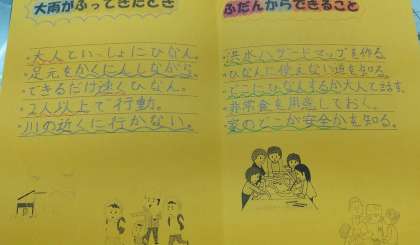 大雨がふってきたとき
・大人といっしょにひなん。
・足元をかくにんしながら。
・できるだけ速くひなん。
・2人以上で行動。
・川の近くに行かない。
ふだんからできること
・洪水ハザードマップを作る。
・ひなんに使えない道を知る。
・どこにひなんするか大人と話す。
・非常食を用意しておく。
・家のどこが安全かを知る。